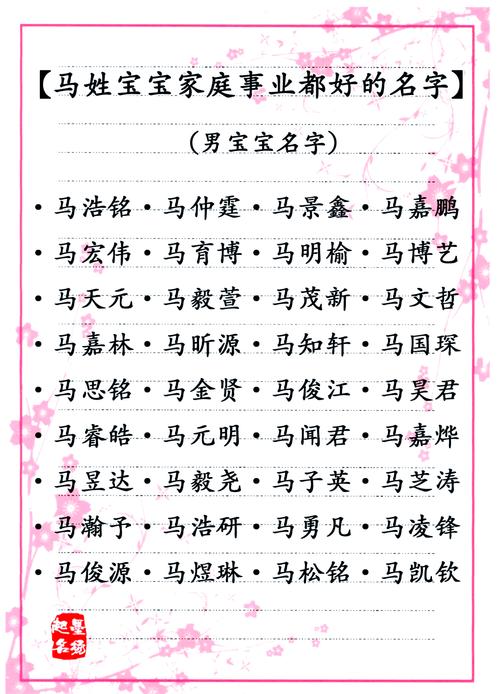 【马姓宝宝家庭事业都好的名字】
(男宝宝名字)
·马浩铭·马仲霆·马景鑫·马嘉鹏
·马宏伟·马育博·马明榆·马博艺
·马天元·马毅萱·马茂新·马文哲
·马嘉林·马昕源·马知轩·马国琛
·马思铭·马金贤·马俊江·马昊君
·马睿皓·马元明·马闻君·马嘉烨
·马昱达·马毅尧·马子英·马芝涛
·马瀚予·马浩研·马勇凡·马凌锋
·马俊源·马煜琳·马松铭·马凯钦
起名